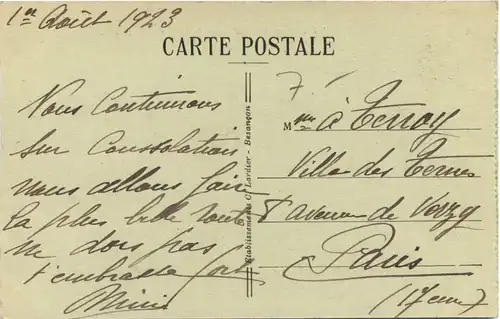 1er Août 1923
CARTE POSTALE
Nous Continuons
sur Consolation
nous allons faire
la plus belle route
ne dors pas
t'embrasse fort
Mimi
Etablissements C. Lardier - Besançon
7.
Mme A. Terray
Villa des Ternes
8 avenue de Verzy
Paris
(17eme)